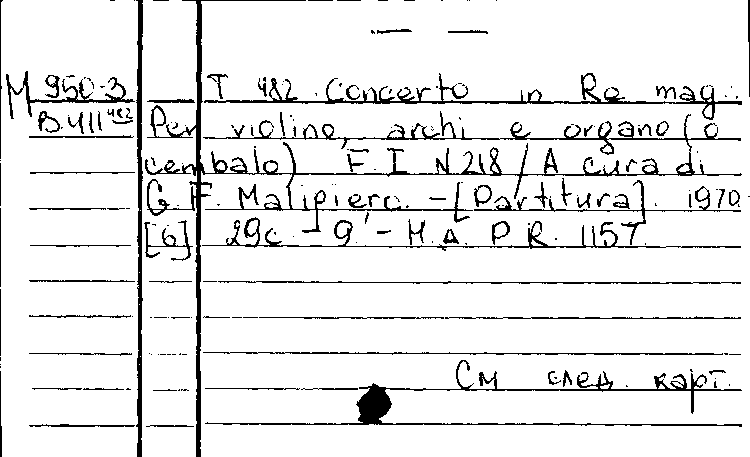 — —
М 950-3 Т 482. Concerto in Re mag.
В-411 482 Per violino, archi e organo (o
cembalo) F. I N 218 / A cura di
G. F. Malipiero. - [Partitura]. 1970
[6] 29с - 9' - Н. Д. P. R. 1157.
См. след. карт.